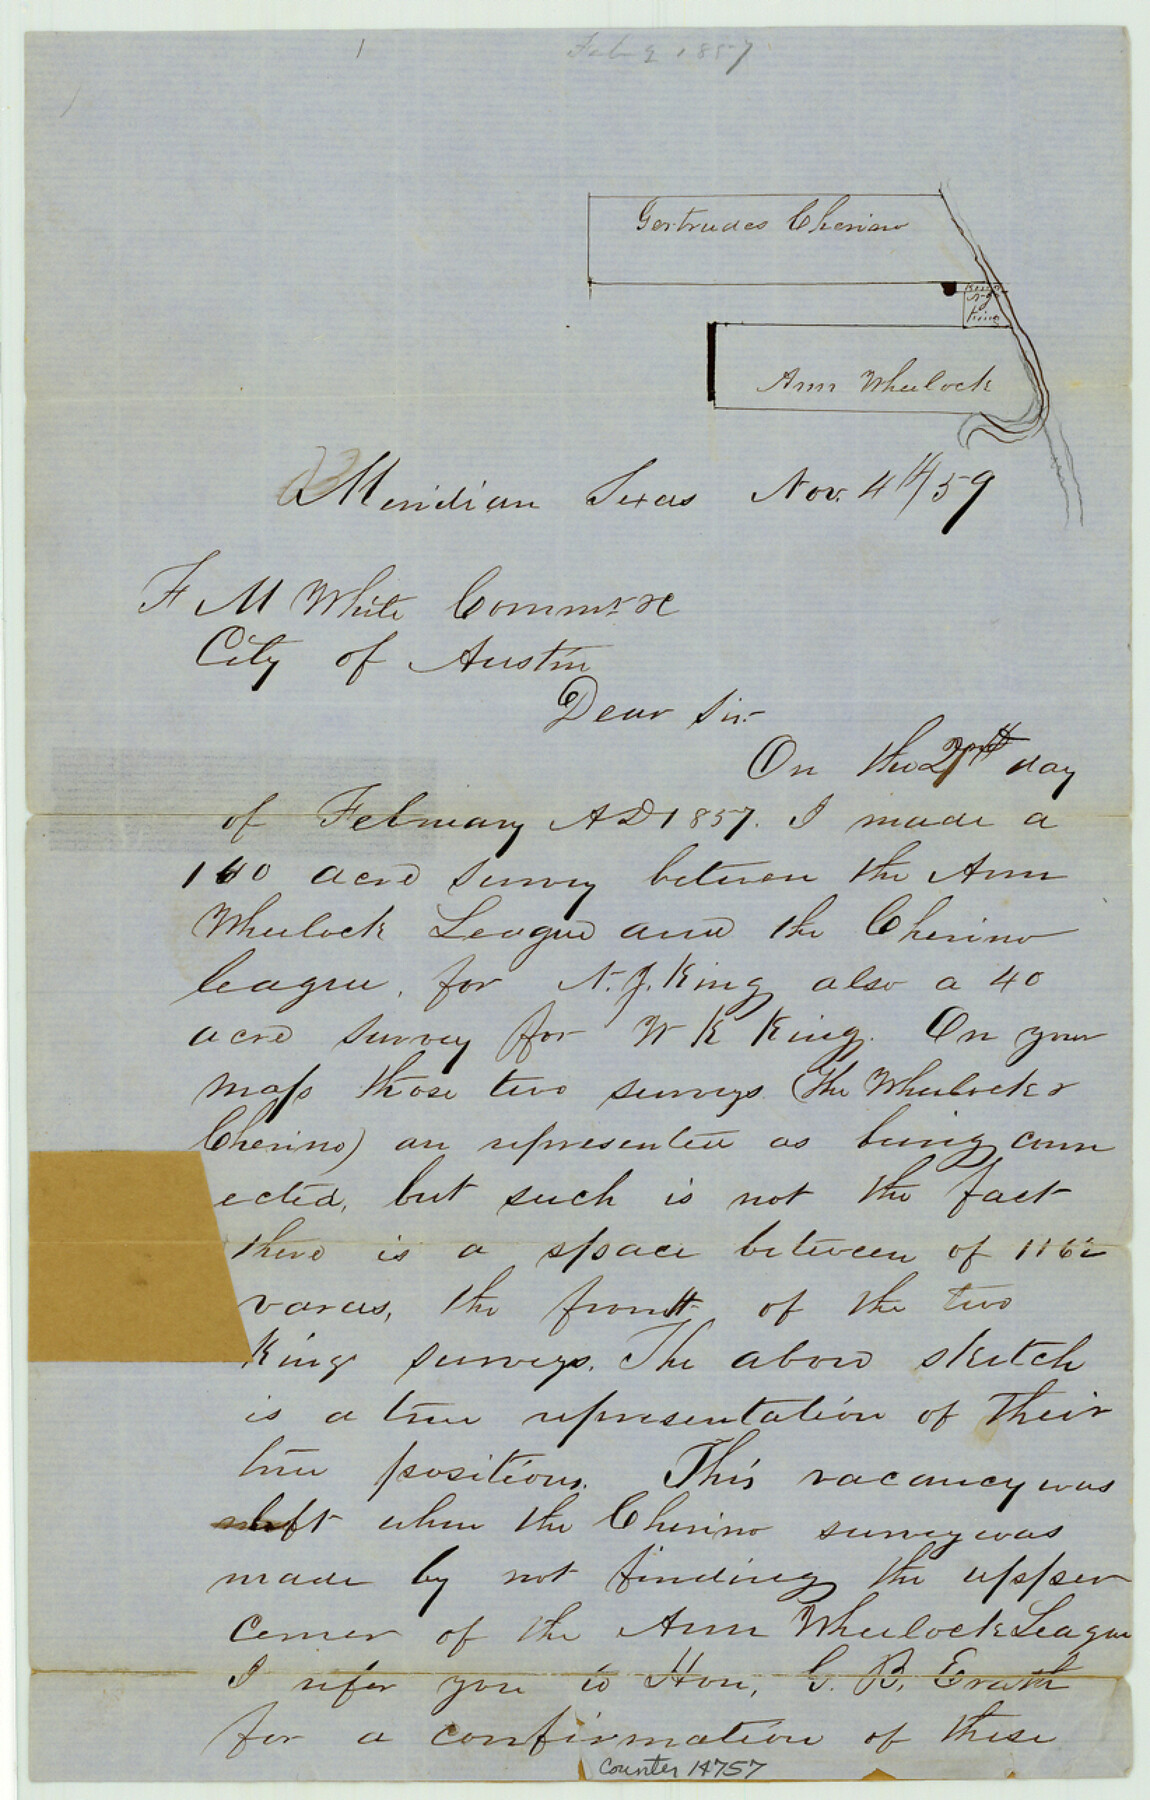 Feb 2 1857
Gertrudes Cherino
N J
King
Ann Wheelock
Meridian Texas Nov. 4th/59
F M White Commsr
City of Austin
Dear Sir
On the 2nd day
of February AD 1857. I made a
160 acre survey between the Ann
Wheelock League and the Cherino
league, for N. J. King also a 40
acre survey for W K King. On your
map those two surveys (the Wheelock &
Cherino) are represented as being conn
ected, but such is not the fact
there is a space between of
varas, the front of the two
King surveys. The above sketch
is a true representation of their
true positions. This vacancy was
left when the Cherino survey was
made by not finding the upper
corner of the Ann Wheelock League
I refer you to Hon, G. B. Erath
for a confirmation of these
counter 14757